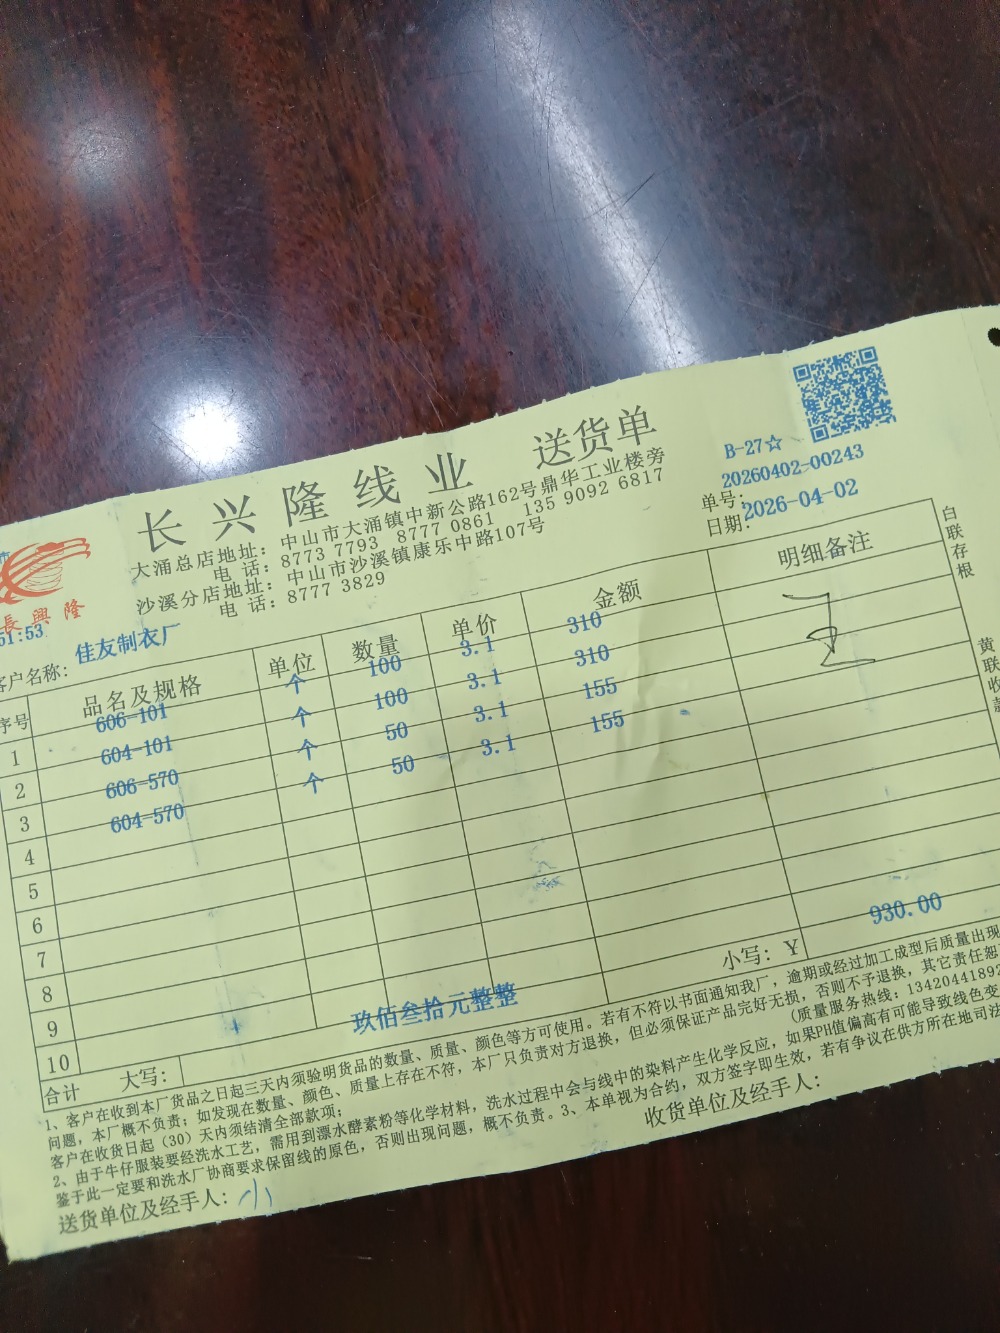 长兴隆线业 送货单
B-27☆
大涌总店地址: 中山市大涌镇中新公路162号鼎华工业楼旁
电 话: 8773 7793 8777 0861 135 9092 6817
沙溪分店地址: 中山市沙溪镇康乐中路107号
电 话: 8777 3829
单号: 20260402-00243
日期: 2026-04-02
長興隆
51:53
客户名称: 佳友制衣厂
序号 品名及规格 单位 数量 单价 金额 明细备注
1 606-101 个 100 3.1 310
2 604-101 个 100 3.1 310
3 606-570 个 50 3.1 155
4 604-570 个 50 3.1 155
5
6
7
8
9
10
合计 大写: 玖佰叁拾元整整 小写: ¥ 930.00
白联存根
黄联收款
1、客户在收到本厂货品之日起三天内须验明货品的数量、质量、颜色等方可使用。若有不符以书面通知我厂,逾期或经过加工成型后质量出现
问题,本厂概不负责;如发现在数量、颜色、质量上存在不符,本厂只负责对方退换,但必须保证产品完好无损,否则不予退换,其它责任恕
客户在收货日起(30)天内须结清全部款项; (质量服务热线:1342044189
2、由于牛仔服装要经洗水工艺,需用到漂水酵素粉等化学材料,洗水过程中会与线中的染料产生化学反应,如果PH值偏高有可能导致线色变
鉴于此一定要和洗水厂协商要求保留线的原色,否则出现问题,概不负责。3、本单视为合约,双方签字即生效,若有争议在供方所在地司法
送货单位及经手人: 小
收货单位及经手人: